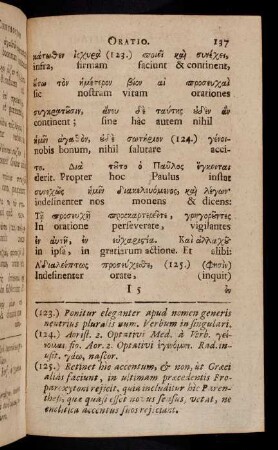 ORATIO. 137
κάτωθεν ἰσχυρὰ (123.) ποιεῖ καὶ συνέχει,
infra, firmam faciunt & continent,
οὕτω τὸν ἡμέτερον βίον αἱ προσευχαὶ
sic nostram vitam orationes
συγκρατοῦσιν, ἄνευ δὲ ταύτης οὐδὲν ἂν
continent; sine hac autem nihil
ἡμῖν ἀγαθὸν, οὐδὲ σωτήριον (124.) γένοι-
nobis bonum, nihil salutare acci-
το. Διὰ τοῦτο ὁ Παῦλος ἔγκειται
derit. Propter hoc Paulus instat
συνεχῶς ἡμῖν διακελευόμενος, καὶ λέγων·
indesinenter nos monens & dicens:
Τῇ προσευχῇ προσκαρτερεῖτε, γρηγοροῦντες
In oratione perseverate, vigilantes
ἐν αὐτῇ, ἐν εὐχαριστίᾳ. Καὶ ἀλλαχοῦ·
in ipsa, in gratiarum actione. Et alibi:
Ἀδιαλείπτως προσεύχεσθε, (125.) (Φησὶν)
Indesinenter orate, (inquit)
I 5
(123.) Ponitur eleganter apud nomen generis
neutrius pluralis num. Verbum in singulari.
(124.) Aorist. 2. Optativi Med. à Verb. γεί-
νομαι fio. Aor. 2. Optativi ἐγενόμην. Rad. in-
usit. γάω, nascor.
(125.) Retinet hic accentum, & non, ut Græci
alias faciunt, in ultimam præcedentis Pro-
paroxytoni rejicit, quia includitur hic Paren-
thesi, quæ quasi esset novus sensus, vetat, ne
enclitica accentus suos rejiciant.